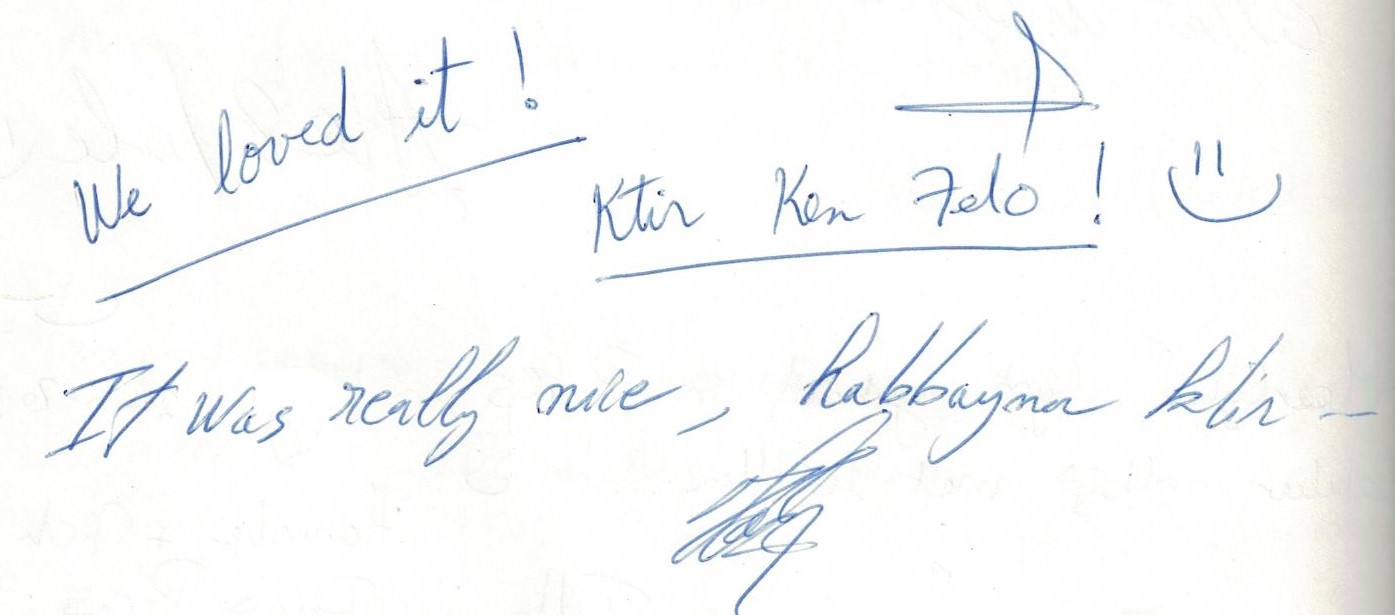 We loved it!
Ktir Ken 7elo!
It was really nice, habbayna ktir -